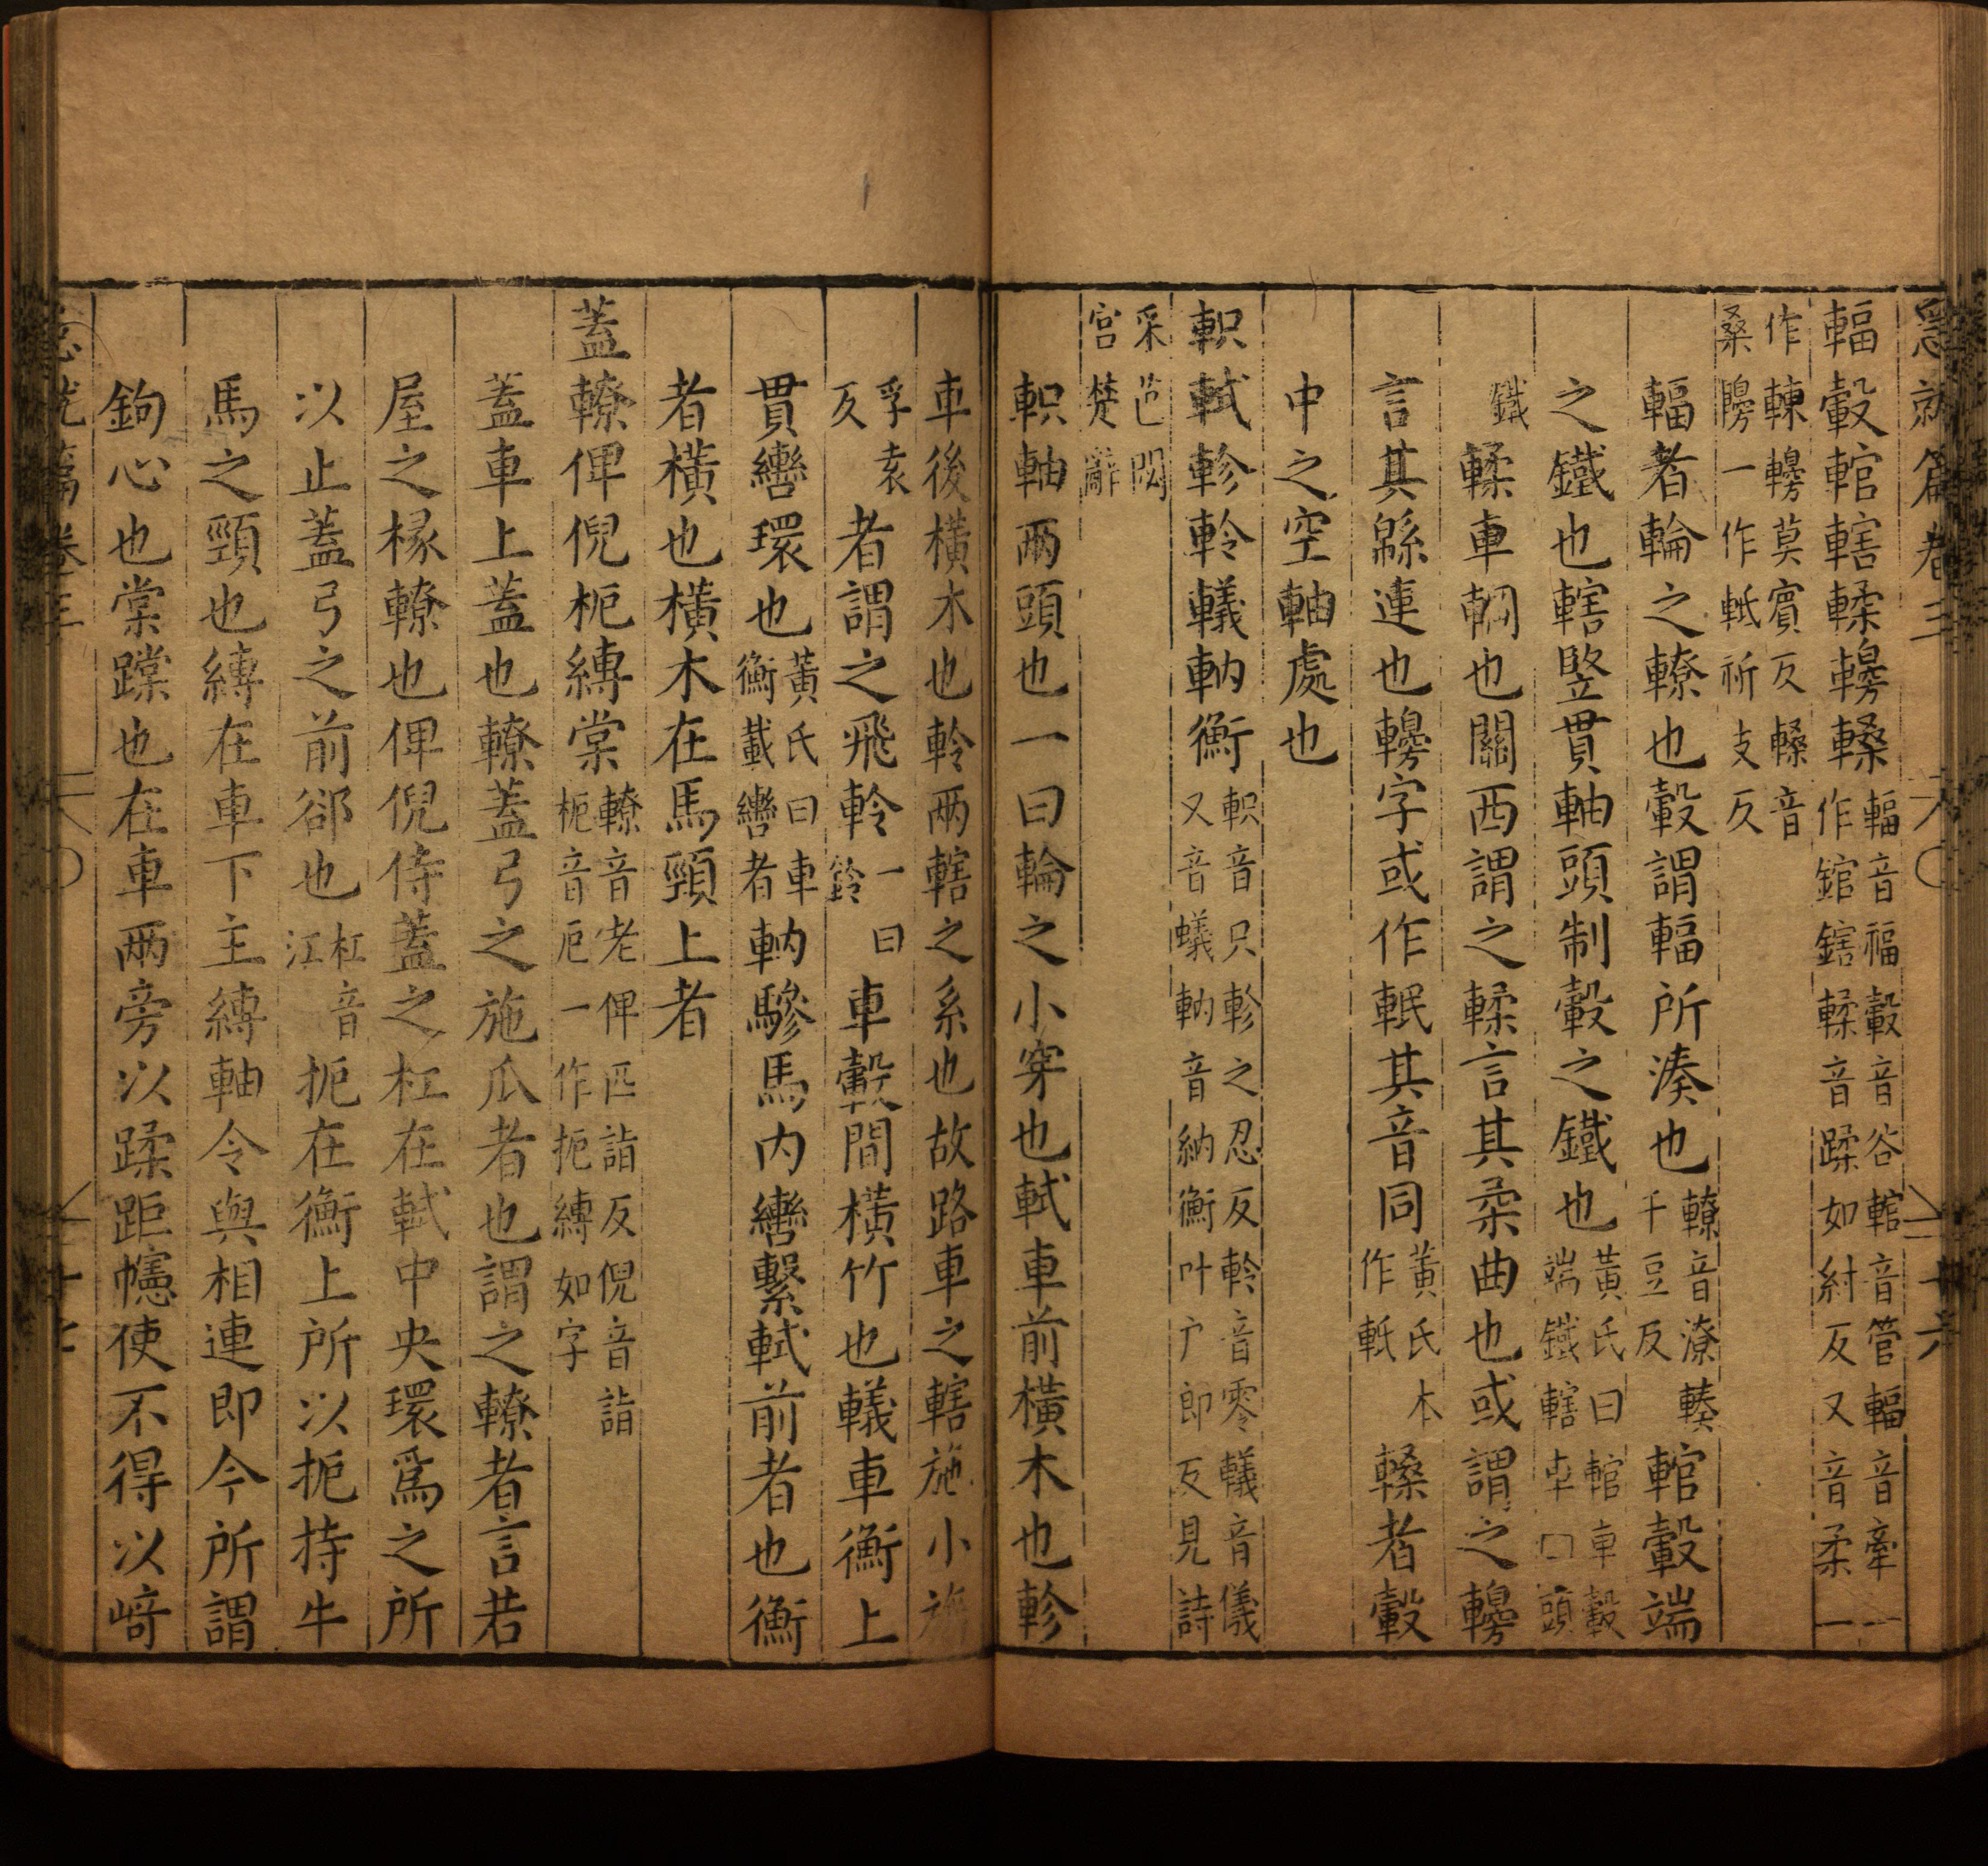 急就篇卷三 十六
輻轂輨轄輮轊轑輻音福轂音谷輨音管轄音舝一作錧鎋輮音蹂如紂反又音柔一
作𨌩莫賓反音
桑一作軝祈支反
輻者輪之轑也轂謂輻所湊也轑音潦輳千豆反輨轂端
之鐵也轄豎貫軸頭制轂之鐵也黃氏曰輨車轂端鐵轄車口頭
鐵輮車輞也關西謂之輮言其柔曲也或謂之
言其緜連也字或作其音同黃氏本作軝者轂
中之空軸處也
軹軾軫軨轙軜衡軹音只軫之忍反軨音零轙音儀又音蟻軜音納衡叶户郎反見詩
采芑閟宮楚辭
軹軸兩頭也一曰輪之小穿也軾車前橫木也軫
車後橫木也軨兩轄之系也故路車之轄施小旛
孚袁反者謂之飛軨一曰鈴車轂間橫竹也轙車衡上
貫轡環也黃氏曰車衡載轡者軜驂馬內轡繫軾前者也衡
者橫也橫木在馬頸上者
蓋轑俾倪枙縛棠轑音老俾匹詣反倪音詣枙音厄一作扼縛如字
蓋車上蓋也轑蓋弓之施瓜者也謂之轑者言若
屋之椽轑也俾倪侍蓋之杠在軾中央環爲之所
以止蓋弓之前郤也杠音江扼在衡上所以扼持牛
馬之頸也縛在車下主縛軸令與相連即今所謂
鉤心也棠蹚也在車兩旁以蹂距幰使不得以﨑
急就篇卷三 十七